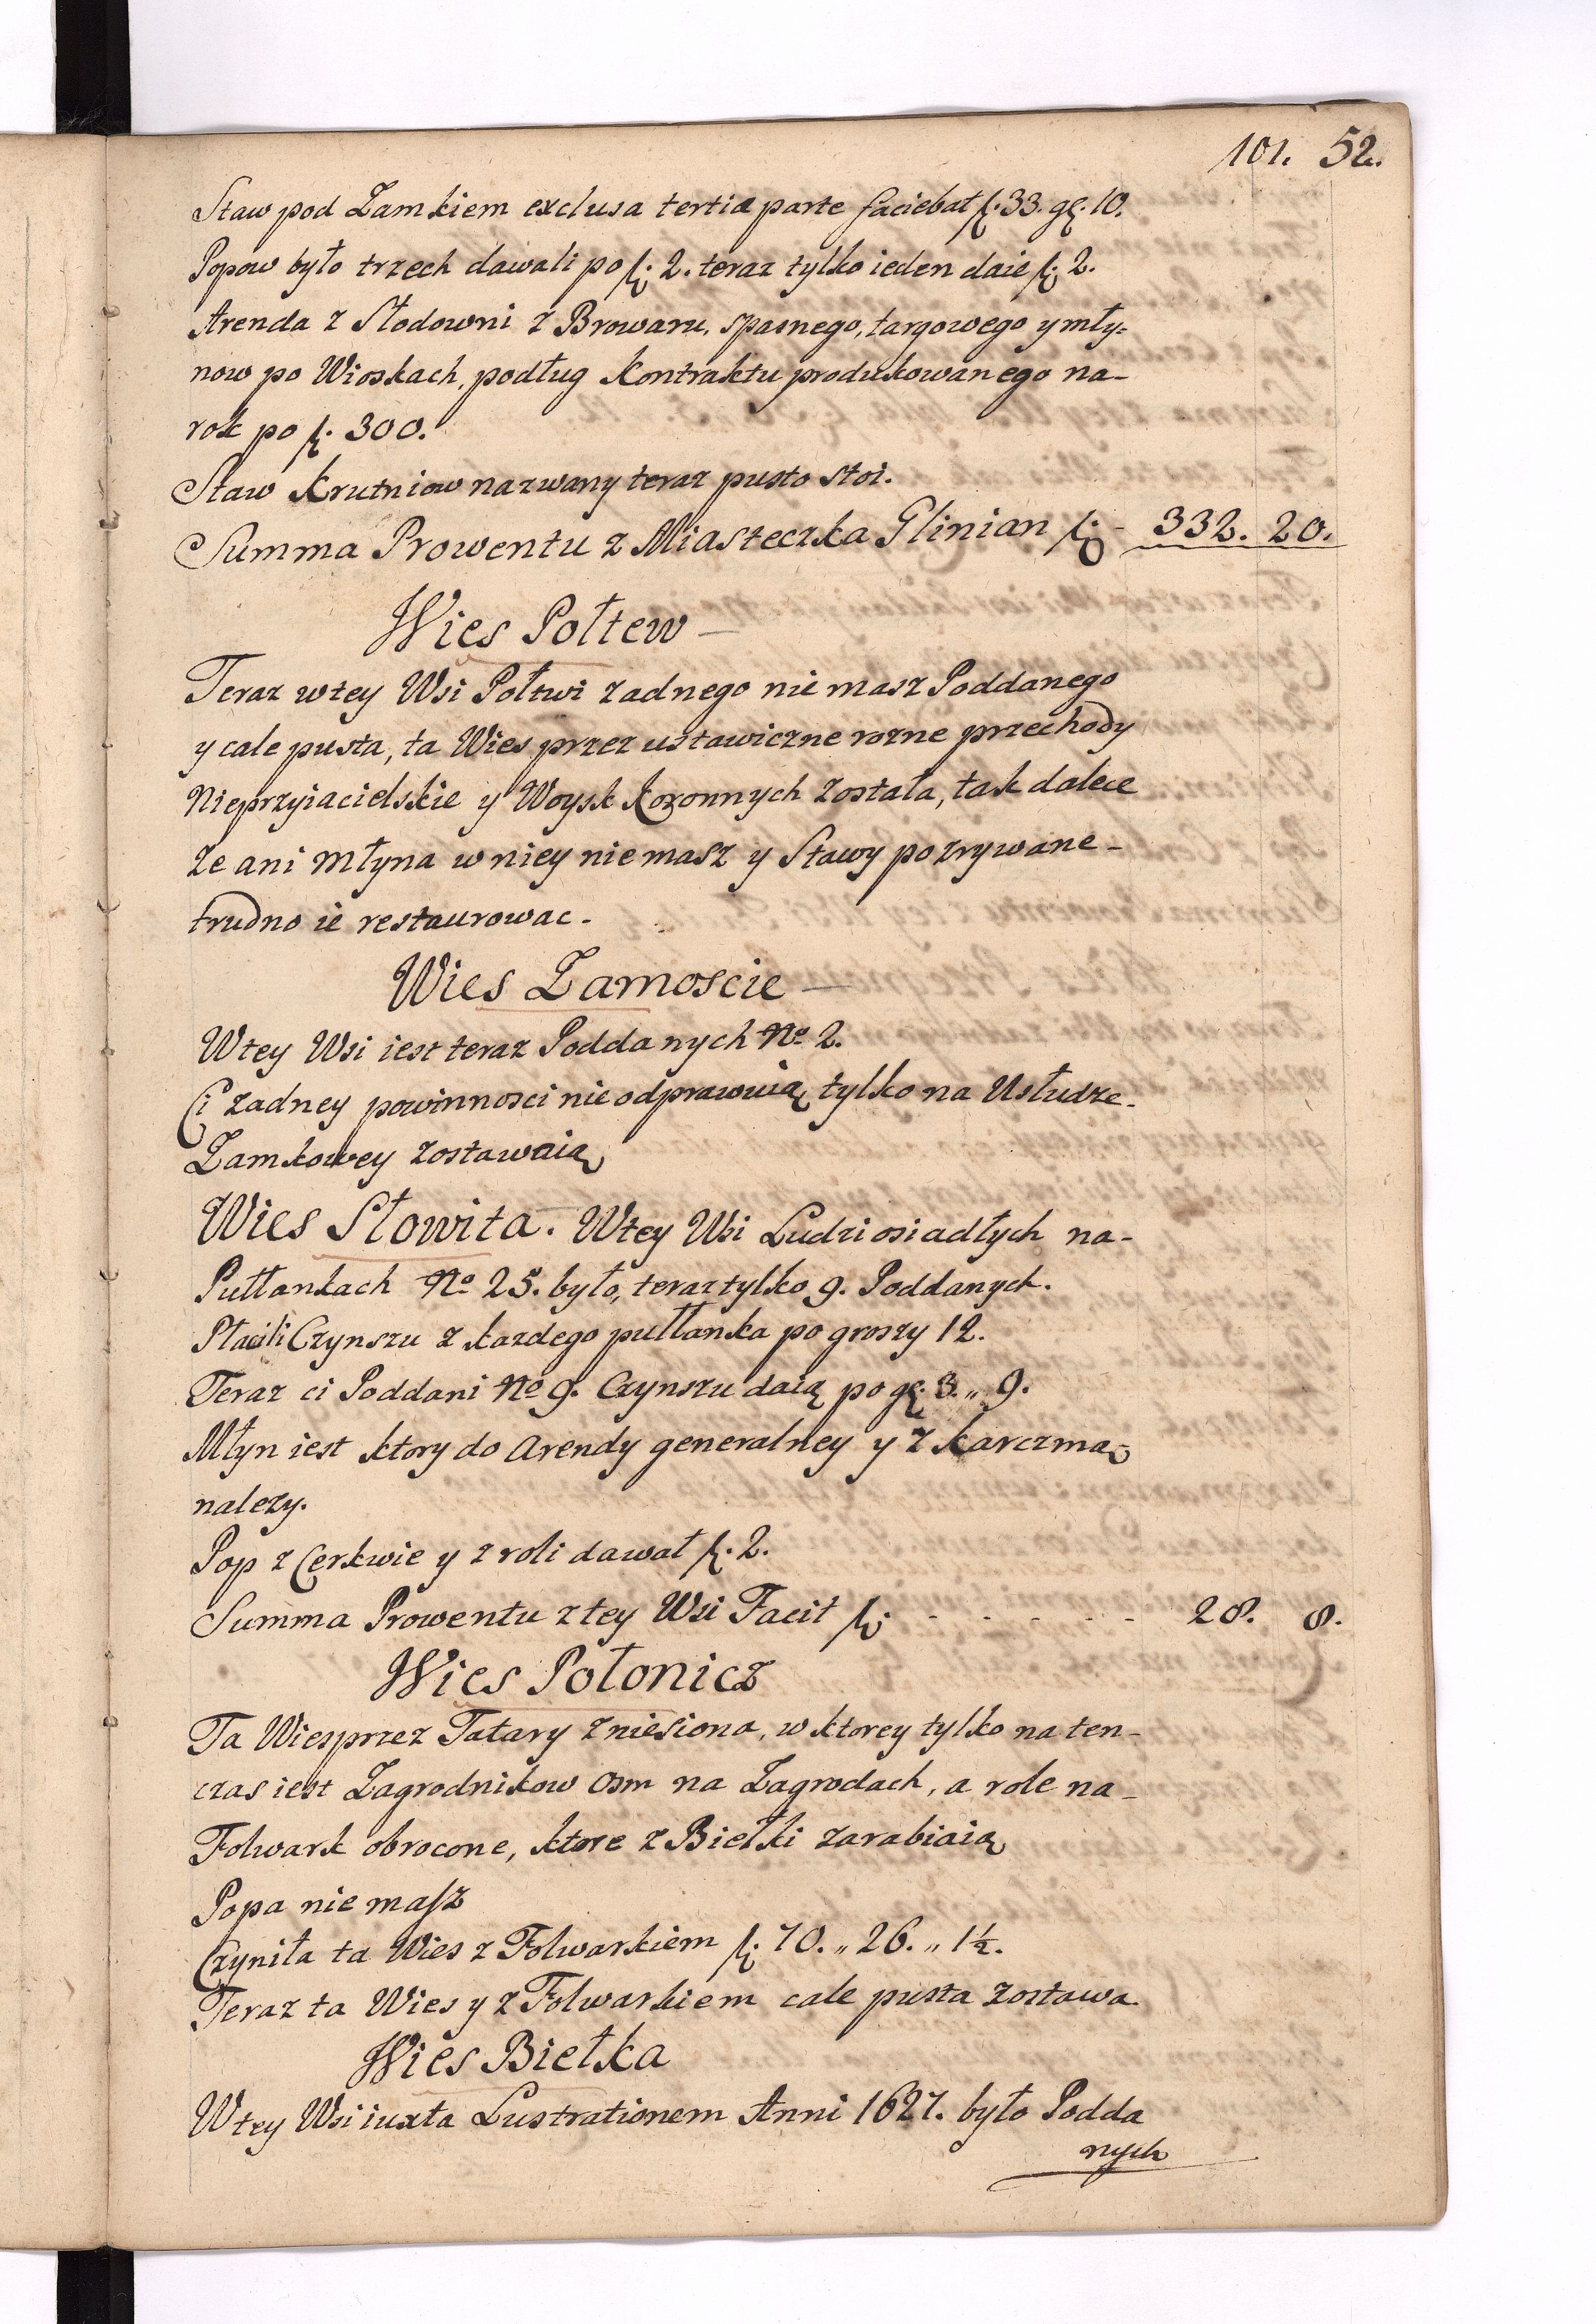 101. 52.
Staw pod Zamkiem exclusa tertia parte faciebat fl. 33. gr. 10.
Popow było trzech dawali po fl. 2. teraz tylko ieden daie fl. 2.
Arenda z Słodowni z Browaru, spasnego, targowego y mły-
now po Wioskach, podług Kontraktu produkowanego na-
rok po fl. 300.
Staw Krutniow nazwany teraz pusto stoi.
Summa Prowentu z Miasteczka Glinian fl. - 332. 20.
Wies Połtew -
Teraz w tey Wsi Połtwi zadnego nie masz Poddanego
y cale pusta, ta Wies przez ustawiczne rozne przechody
Nieprzyiacielskie y Woysk Koronnych została, tak dalece
ze ani Młyna w niey nie masz y Stawy pozrywane -
trudno ie restaurowac -
Wies Zamoscie -
W tey Wsi iest teraz Poddanych No 2.
Ci zadney powinnosci nie odprawuią tylko na Usłudze -
Zamkowey zostawaią
Wies Słowita. W tey Wsi Ludzi osiadłych na-
Pułłankach No 25. było, teraz tylko 9. Poddanych.
Płacili Czynszu z kazdego pułłanka po groszy 12.
Teraz ci Poddani No 9. Czynszu daią po gr. 3. „ 9.
Młyn iest ktory do Arendy generalney y z Karczmą
nalezy.
Pop z Cerkwie y z roli dawał fl. 2.
Summa Prowentu z tey Wsi Facit fl. - - - - - 28. 8.
Wies Połonicz
Ta Wies przez Tatary zniesiona, w ktorey tylko na ten-
czas iest Zagrodnikow osm na Zagrodach, a role na -
Folwark obrocone, ktore z Biełki zarabiaią
Popa nie masz
Czyniła ta Wies z Folwarkiem fl. 70. „ 26. „ 1½.
Teraz ta Wies y z Folwarkiem cale pusta zostawa
Wies Biełka
W tey Wsi iuxta Lustrationem Anni 1627. było Podda
nych